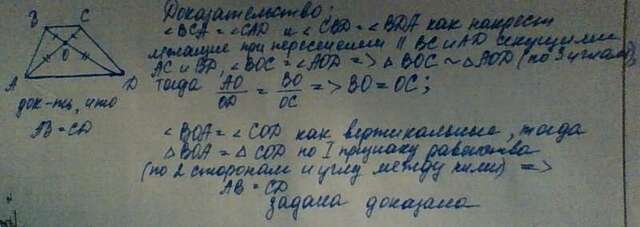 B C
O
A D
док-ть, что
AB = CD
Доказательство:
∠BCA = ∠CAD и ∠CBD = ∠BDA как накрест
лежащие при пересечении || BC и AD секущими
AC и BD, ∠BOC = ∠AOD => △BOC ~ △AOD (по 3 углам),
тогда AO/OD = BO/OC => BO = OC;
∠BOA = ∠COD как вертикальные, тогда
△BOA = △COD по I признаку равенства
(по 2 сторонам и углу между ними) =>
AB = CD
задача доказана